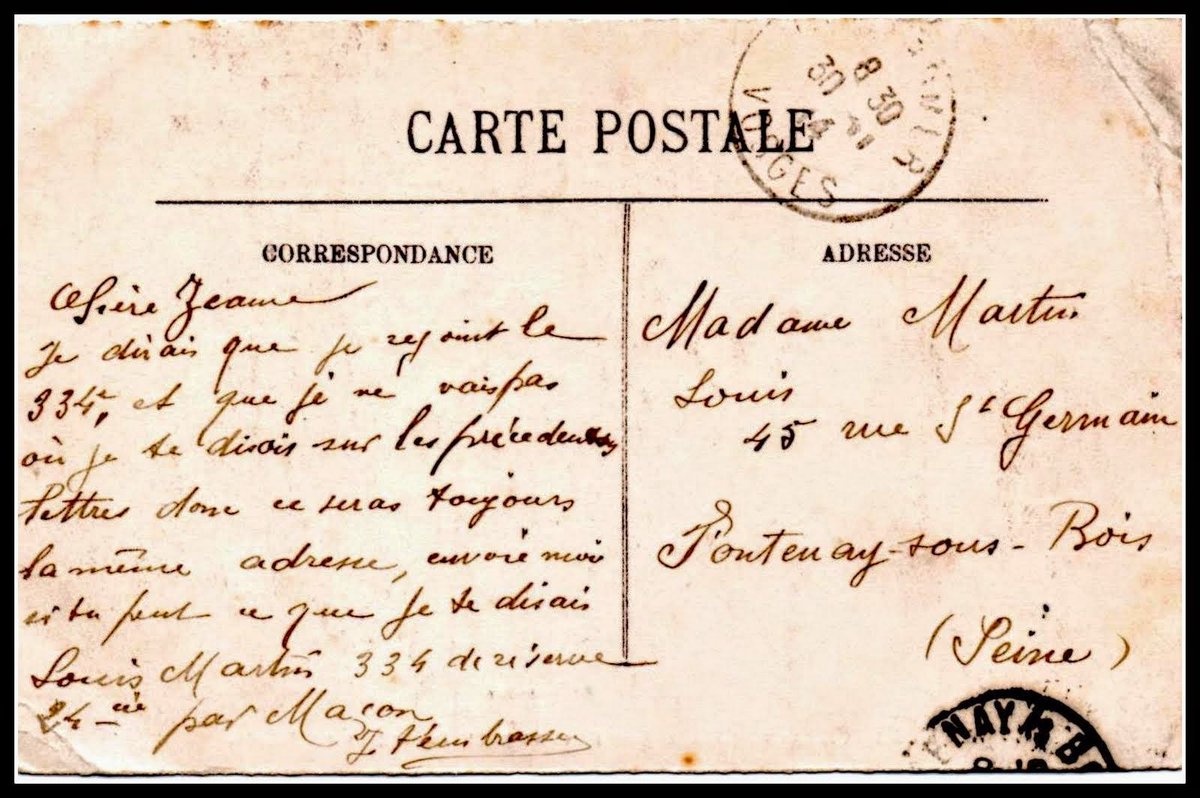 CARTE POSTALE
8 30
30
14
VOSGES
CORRESPONDANCE
Chère Jeanne
Je dirais que je rejoint le
334e, et que je ne vais pas
où je te disais sur les précedentes
lettres donc ce seras toujours
la même adresse, envoie moi
si tu peut ce que je te disais
Louis Martin 334 de réserve
24 cie par Maçon
Je t'embrasse
ADRESSE
Madame Martin
Louis
45 rue St Germain
Fontenay-sous-Bois
(Seine)
ENAY S B